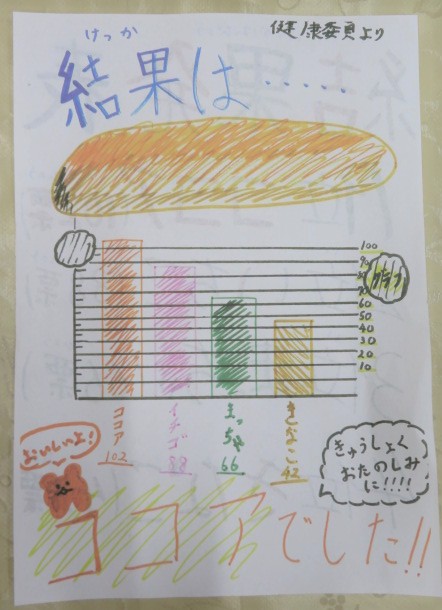 健康委員より
けっか
結果は・・・・・
100
90
80
70
60
50
40
30
20
10
ココア
102
イチゴ
88
まっちゃ
66
きなこ
42
おいしいよ!
きゅうしょく
おたのしみ
に!!!!
ココアでした!!